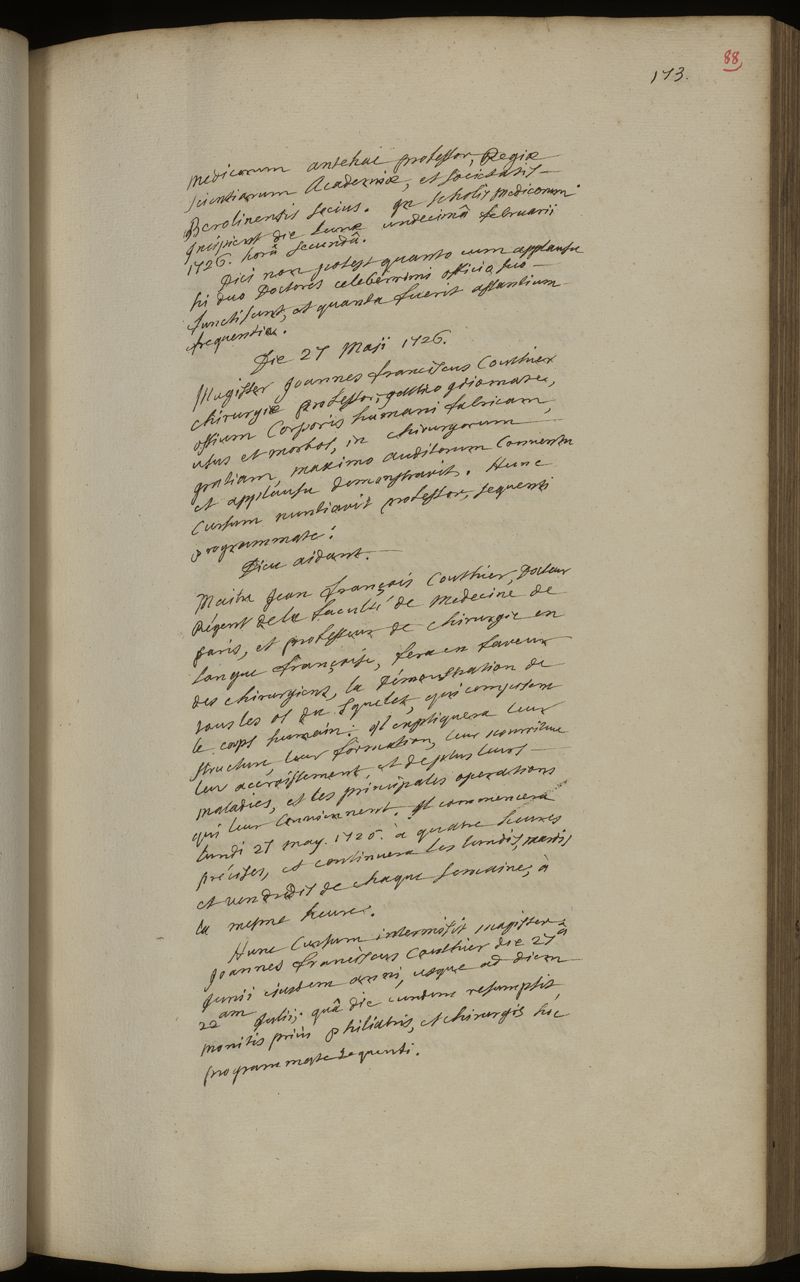 88
173.
medicorum antehac professor, Regiæ
scientiarum Academiæ, et societatis
Berolinensis socius. in scholis medicorum
incipient die lunæ undecimâ februarii
1726. horâ secundâ.
Dici non potest quanto cum applausu
hi duo Doctores celeberrimi officio suo
functi sunt, et quanta fuerit astantium
frequentia.
Die 27 Maji 1726.
Magister Joannes franciscus Couthier
chirurgiæ professor, gallico idiomate,
ossium Corporis humani fabricam,
usus et morbos, in chirurgorum
gratiam, maximo auditorum Conventu
et applausu demonstravit. Hunc
Cursum nuntiavit professor, sequenti
programmate:
Dieu aidant.
Maitre Jean françois Couthier, Docteur
Régent de la faculté de Medecine de
paris, et professeur de chirurgie en
langue françoise, fera en faveur
des chirurgiens, la Démonstration de
tous les os du squelet, qui composent
le corps humain: il expliquera leur
structure, leur formation, leur nourriture
leur accroissement, et de plus leurs
maladies, et les principales operations
qui leur conviennent. Il commencera
lundi 27 may. 1726. à quatre heures
précises, et continuera les lundis, mardis,
et vendredis de chaque semaine, à
la mesme heure.
Hunc Cursum intermisit magister
Joannes franciscus Couthier die 27â
Junii ejusdem anni, usque ad diem
22am Julii; quâ die eundem resumpsit
monitis prius philiatris, et chirurgis hoc
programmate sequenti.